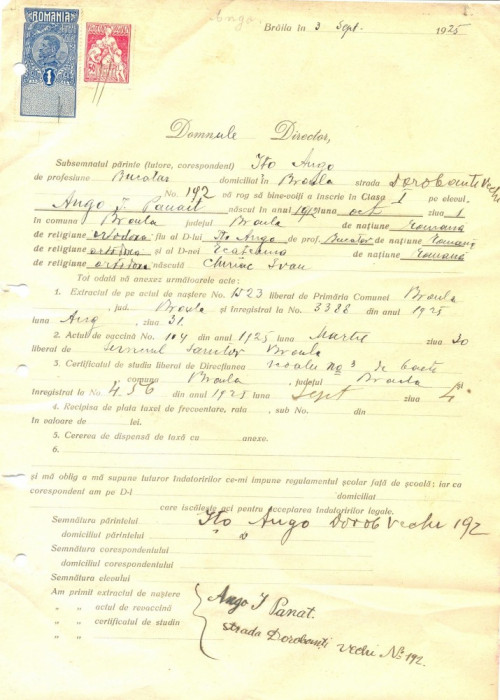 ROMANIA
1
50
Ango.
Brăila în 3 Sept. 1925
Domnule Director,
Subsemnatul părinte (tutore, corespondent) Ilo Ango
de profesiune Bucatar domiciliat în Braila strada Dorobanti Vechi
No. 192 vă rog să bine-voiți a înscrie în Clasa I pe elevul
Ango I Panait născut în anul 1912 luna oct ziua 1
în comuna Braila județul Braila de națiune Romana
de religiune ortodoxa fiu al D-lui Ilo Ango de prof. Bucatar de națiune Romana
de religiune ortodoxa și al D-nei Ecaterina de națiune Romana
de religiune ortodoxa născută Chiriac Ivan
Tot odată vă anexez următoarele acte:
1. Extractul de pe actul de naștere No. 1523 liberat de Primăria Comunei Braila
, jud. Braila și înregistrat la No. 3388 din anul 1925
luna Aug , ziua 31
2. Actul de vaccină No 104 din anul 1925 luna Martie ziua 30
liberat de Serviciul Sanitar Braila
3. Certificatul de studia liberat de Direcțiunea Scoalei No 3 de baeti
, comuna Braila , județul Braila și
înregistrat la No. 456 din anul 1925 luna Sept ziua 4
4. Recipisa de plata taxei de frecventare, rata , sub No. din
în valoare de lei.
5. Cererea de dispensă de taxă cu anexe.
6.
și mă oblig a mă supune tutaror îndatoririlor ce-mi impune regulamentul școlar față de școală; iar ca
corespondent am pe D-l domiciliat
care iscălește aci pentru acceptarea îndatoririlor legale.
Semnătura părintelui Ilo Ango Dorob Vechi 192
domiciliul părintelui
Semnătura corespondentului
domiciliul corespondentului
Semnătura elevului
Am primit extractul de naștere
„ „ actul de revaccină
„ „ certificatul de studin
„ „
Ango I Panat.
strada Dorobanți Vechi No 192.